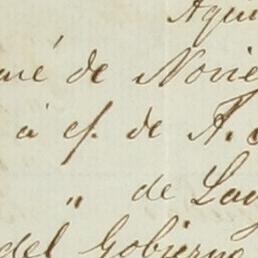 Aqui
mé de Novie
á cf. de A.
" de Lav
del Gobierno